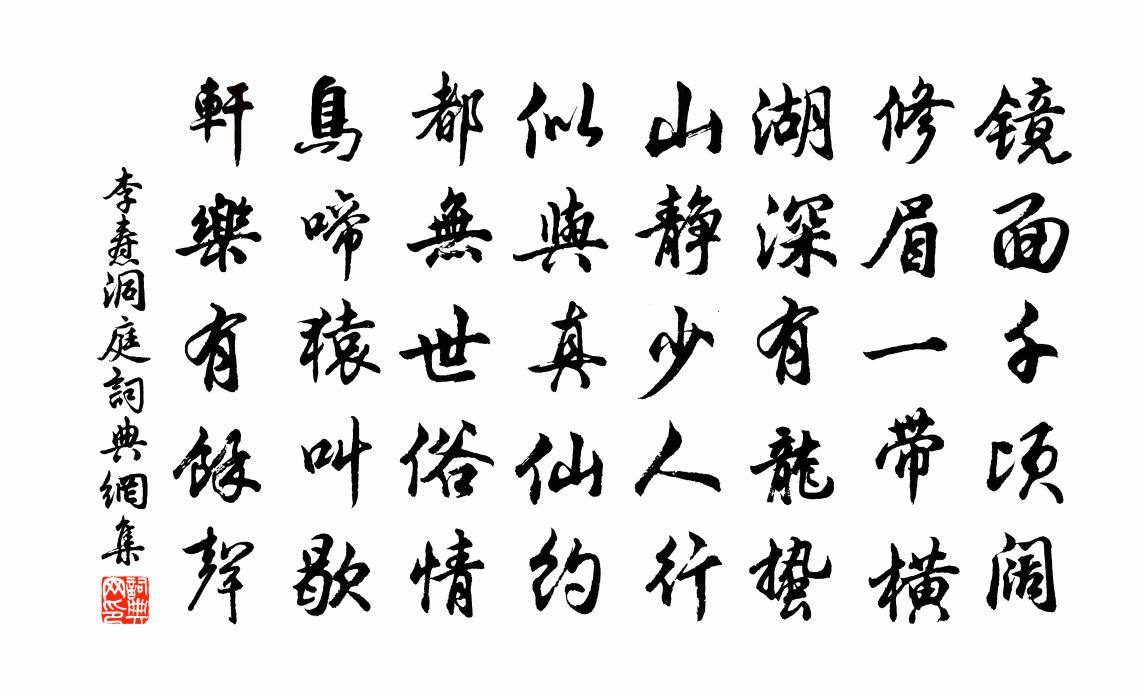 镜面千顷阔
修眉一带横
湖深有龍蟄
山静少人行
似與真仙约
都無世俗情
鳥啼猿叫歇
軒樂有餘聲
李燾洞庭詞典網集
詞典網印